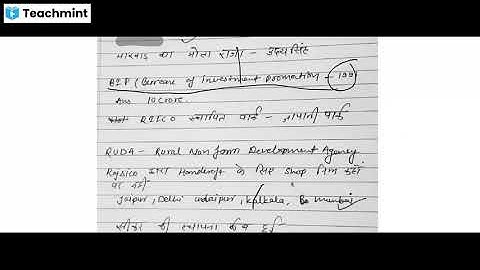 Teachmint
मारवाड का मोटा राजा - उदयसिंह
BIP (Bureau of Investment Promotion - 199
Ans 10 crore.
RIICO स्थापित पार्क - जापानी पार्क
RUDA - Rural Non form Development Agency
Rajsico द्वारा Handicraft के लिए shop निम्न कहाँ
पर नहीं
Jaipur, Delhi udaipur, Kolkata, mumbai
सीडा की स्थापना कब हुई